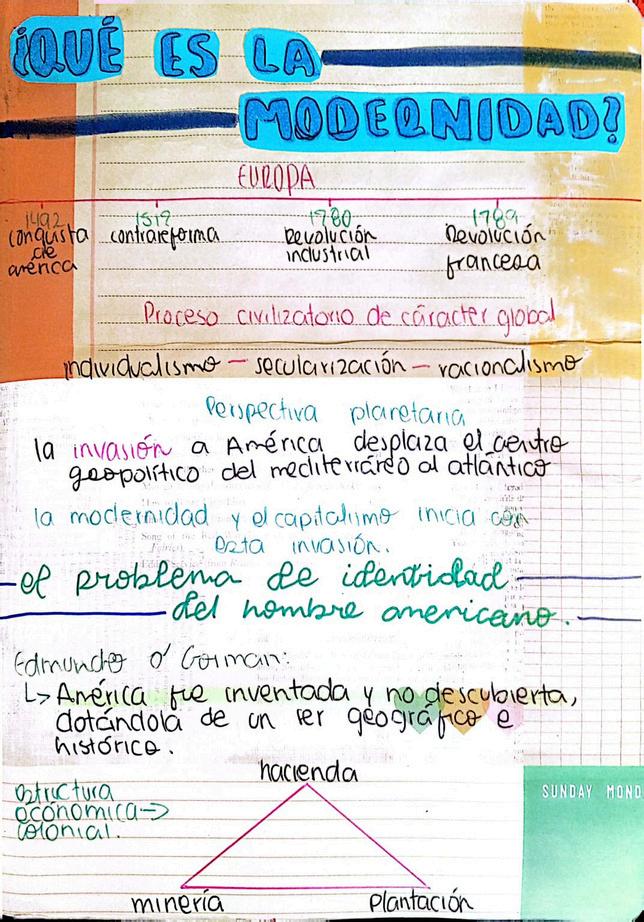 ¡QUÉ ES LA
MODERNIDAD?
EUROPA
1492 1517 1780 1789
conquista contrareforma Revolución Revolución
de industrial francesa
américa
Proceso civilizatorio de cáracter global
individualismo — secularización — racionalismo
Perspectiva planetaria
la invasión a América desplaza el centro
geopolítico del mediterráneo al atlántico
la modernidad y el capitalismo inicia con
esta invasión.
el problema de identidad
del hombre americano.
Edmundo O' Gorman:
↳ América fue inventada y no descubierta,
dotándola de un ser geográfico e
histórico.
hacienda
estructura
económica →
colonial.
minería plantación
SUNDAY MOND